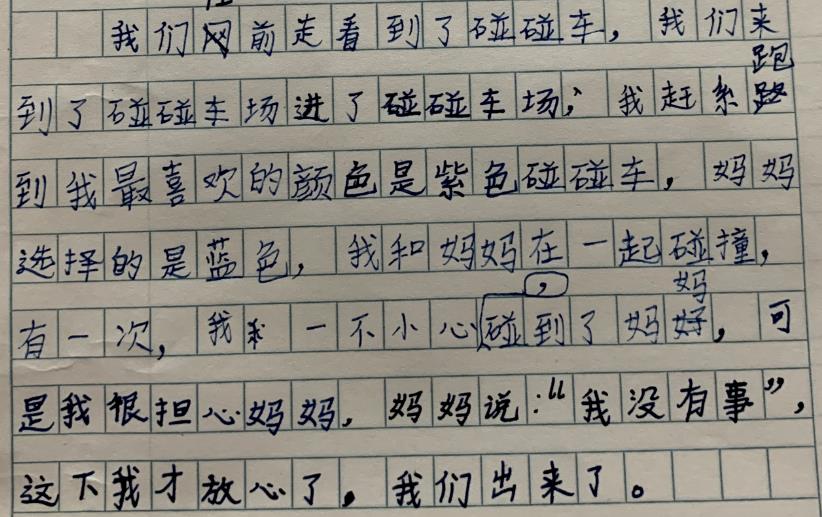 我们前走看到了碰碰车，我们来
到了碰碰车场进了碰碰车场，我赶紧跑
到我最喜欢的颜色是紫色碰碰车，妈妈
选择的是蓝色，我和妈妈在一起碰撞，
有一次，我一不小心，碰到了妈妈，可
是我很担心妈妈，妈妈说：“我没有事”，
这下我才放心了，我们出来了。